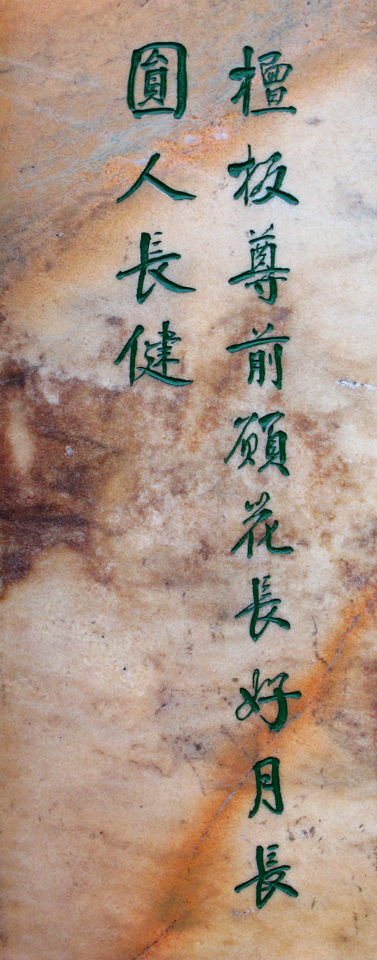 檀板尊前願花長好月長
圓人長健